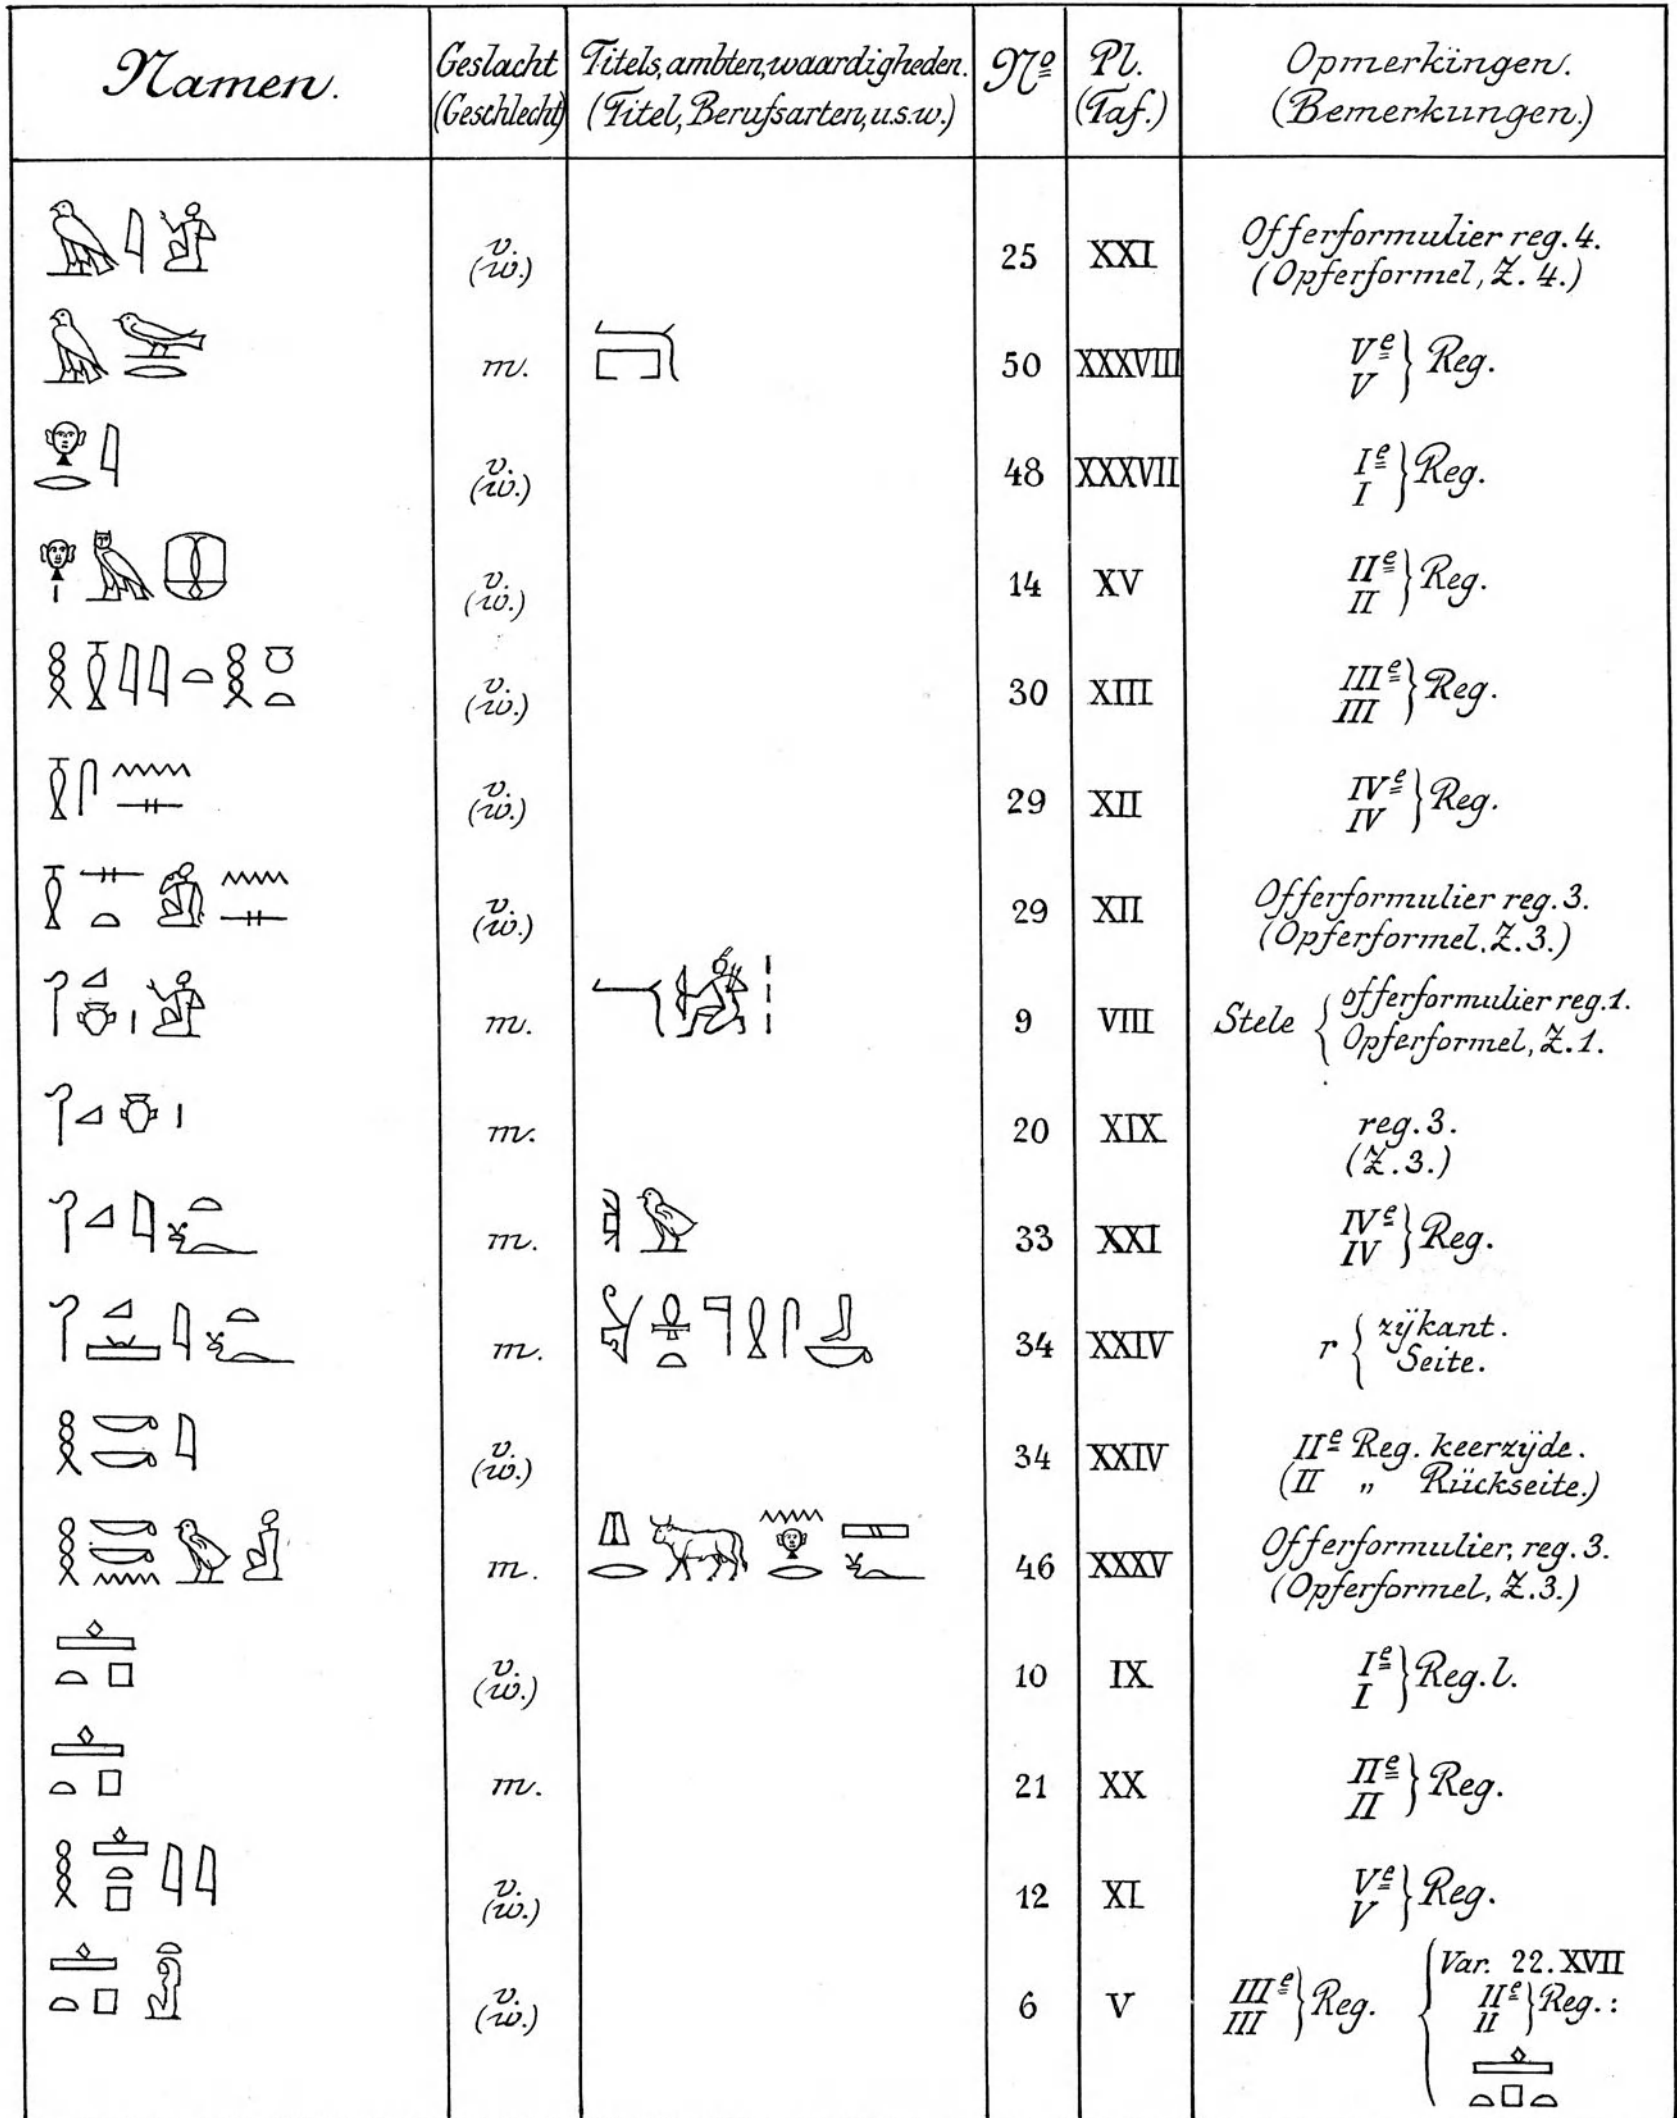 Namen.
Geslacht
(Geschlecht)
Titels, ambten, waardigheden.
(Titel, Berufsarten, u.s.w.)
Nº
Pl.
(Taf.)
Opmerkingen.
(Bemerkungen.)
𓅃𓇋𓀁 v. (w.) 25 XXI Offerformulier reg. 4.
(Opferformel, Z. 4.)
𓅃𓅨𓂋 m. 𓄓𓉐 50 XXXVIII Vᵉ } Reg.
V
𓁷𓂋𓇋 v. (w.) 48 XXXVII Iᵉ } Reg.
I
𓁷𓏤𓅓𓎱 v. (w.) 14 XV IIᵉ } Reg.
II
𓎛𓎿𓇋𓇋𓏏𓎛𓏌𓏏 v. (w.) 30 XIII IIIᵉ } Reg.
III
𓎿𓋴𓈖𓊃 v. (w.) 29 XII IVᵉ } Reg.
IV
𓎿𓊃𓏏𓀁𓈖𓊃 v. (w.) 29 XII Offerformulier reg. 3.
(Opferformel, Z. 3.)
𓋾𓈎𓄣𓏤𓀁 m. 𓄓𓀎𓏼 9 VIII Stele { offerformulier reg. 1.
Opferformel, Z. 1.
𓋾𓈎𓄣𓏤 m. 20 XIX reg. 3.
(Z. 3.)
𓋾𓈎𓇋𓏏𓆑 m. 33 XXI IVᵉ } Reg.
IV
𓋾𓈎𓇋𓏏𓆑 m. 34 XXIV r { zijkant.
Seite.
𓎛𓎡𓎡𓇋 v. (w.) 34 XXIV IIᵉ Reg. keerzijde.
(II „ Rückseite.)
𓎛𓎡𓎡𓈖𓅱𓀀 m. 46 XXXV Offerformulier, reg. 3.
(Opferformel, Z. 3.)
𓊵𓏏𓊪 v. (w.) 10 IX Iᵉ } Reg. l.
I
𓊵𓏏𓊪 m. 21 XX IIᵉ } Reg.
II
𓎛𓊵𓏏𓊪𓇋𓇋 v. (w.) 12 XI Vᵉ } Reg.
V
𓊵𓏏𓊪 v. (w.) 6 V IIIᵉ } Reg. { Var. 22. XVII
III
IIᵉ } Reg. :
II
𓊵𓏏𓊪𓏏